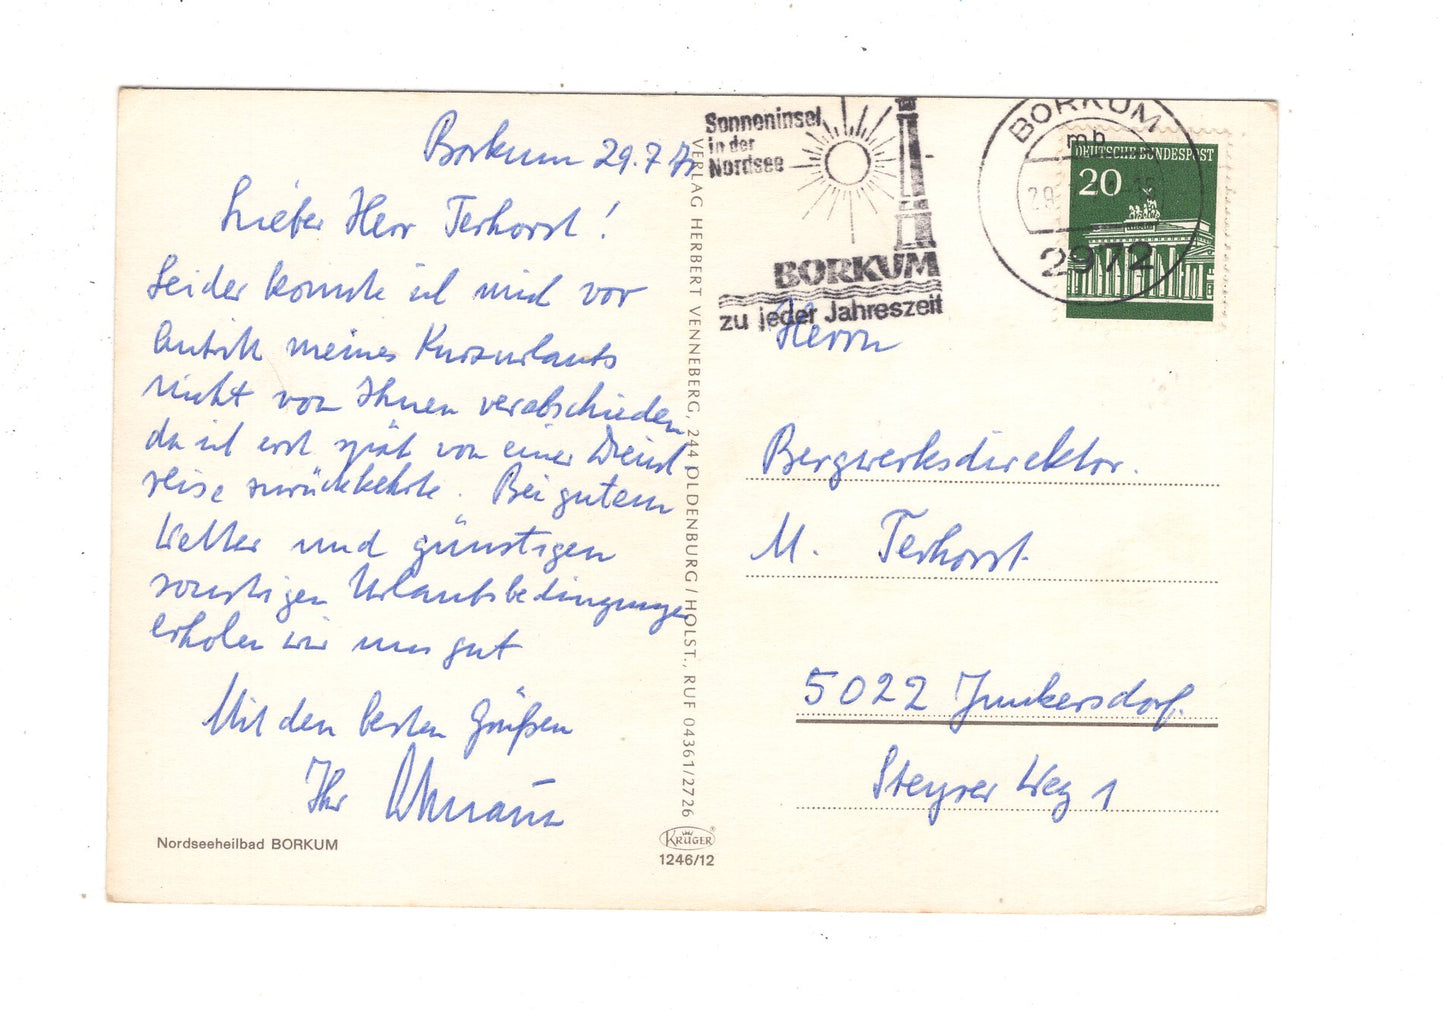 Borkum 29.7.
Lieber Herr Terhorst!
Leider konnte ich mich vor
Antritt meines Kurzurlaubs
nicht von Ihnen verabschieden
da ich erst spät von einer Dienst
reise zurückkehrte. Bei gutem
Wetter und günstigen
sonstigen Urlaubsbedingungen
erholen wir uns gut
Mit den besten Grüßen
Ihr
Nordseeheilbad BORKUM
VERLAG HERBERT VENNEBERG, 244 OLDENBURG/HOLST., RUF 04361/2726
KRÜGER
1246/12
Sonneninsel
in der
Nordsee
BORKUM
zu jeder Jahreszeit
BORKUM
mb
2972
DEUTSCHE BUNDESPOST
20
Herrn
Bergwerksdirektor.
M. Terhorst
5022 Junkersdorf.
Steyrer Weg 1